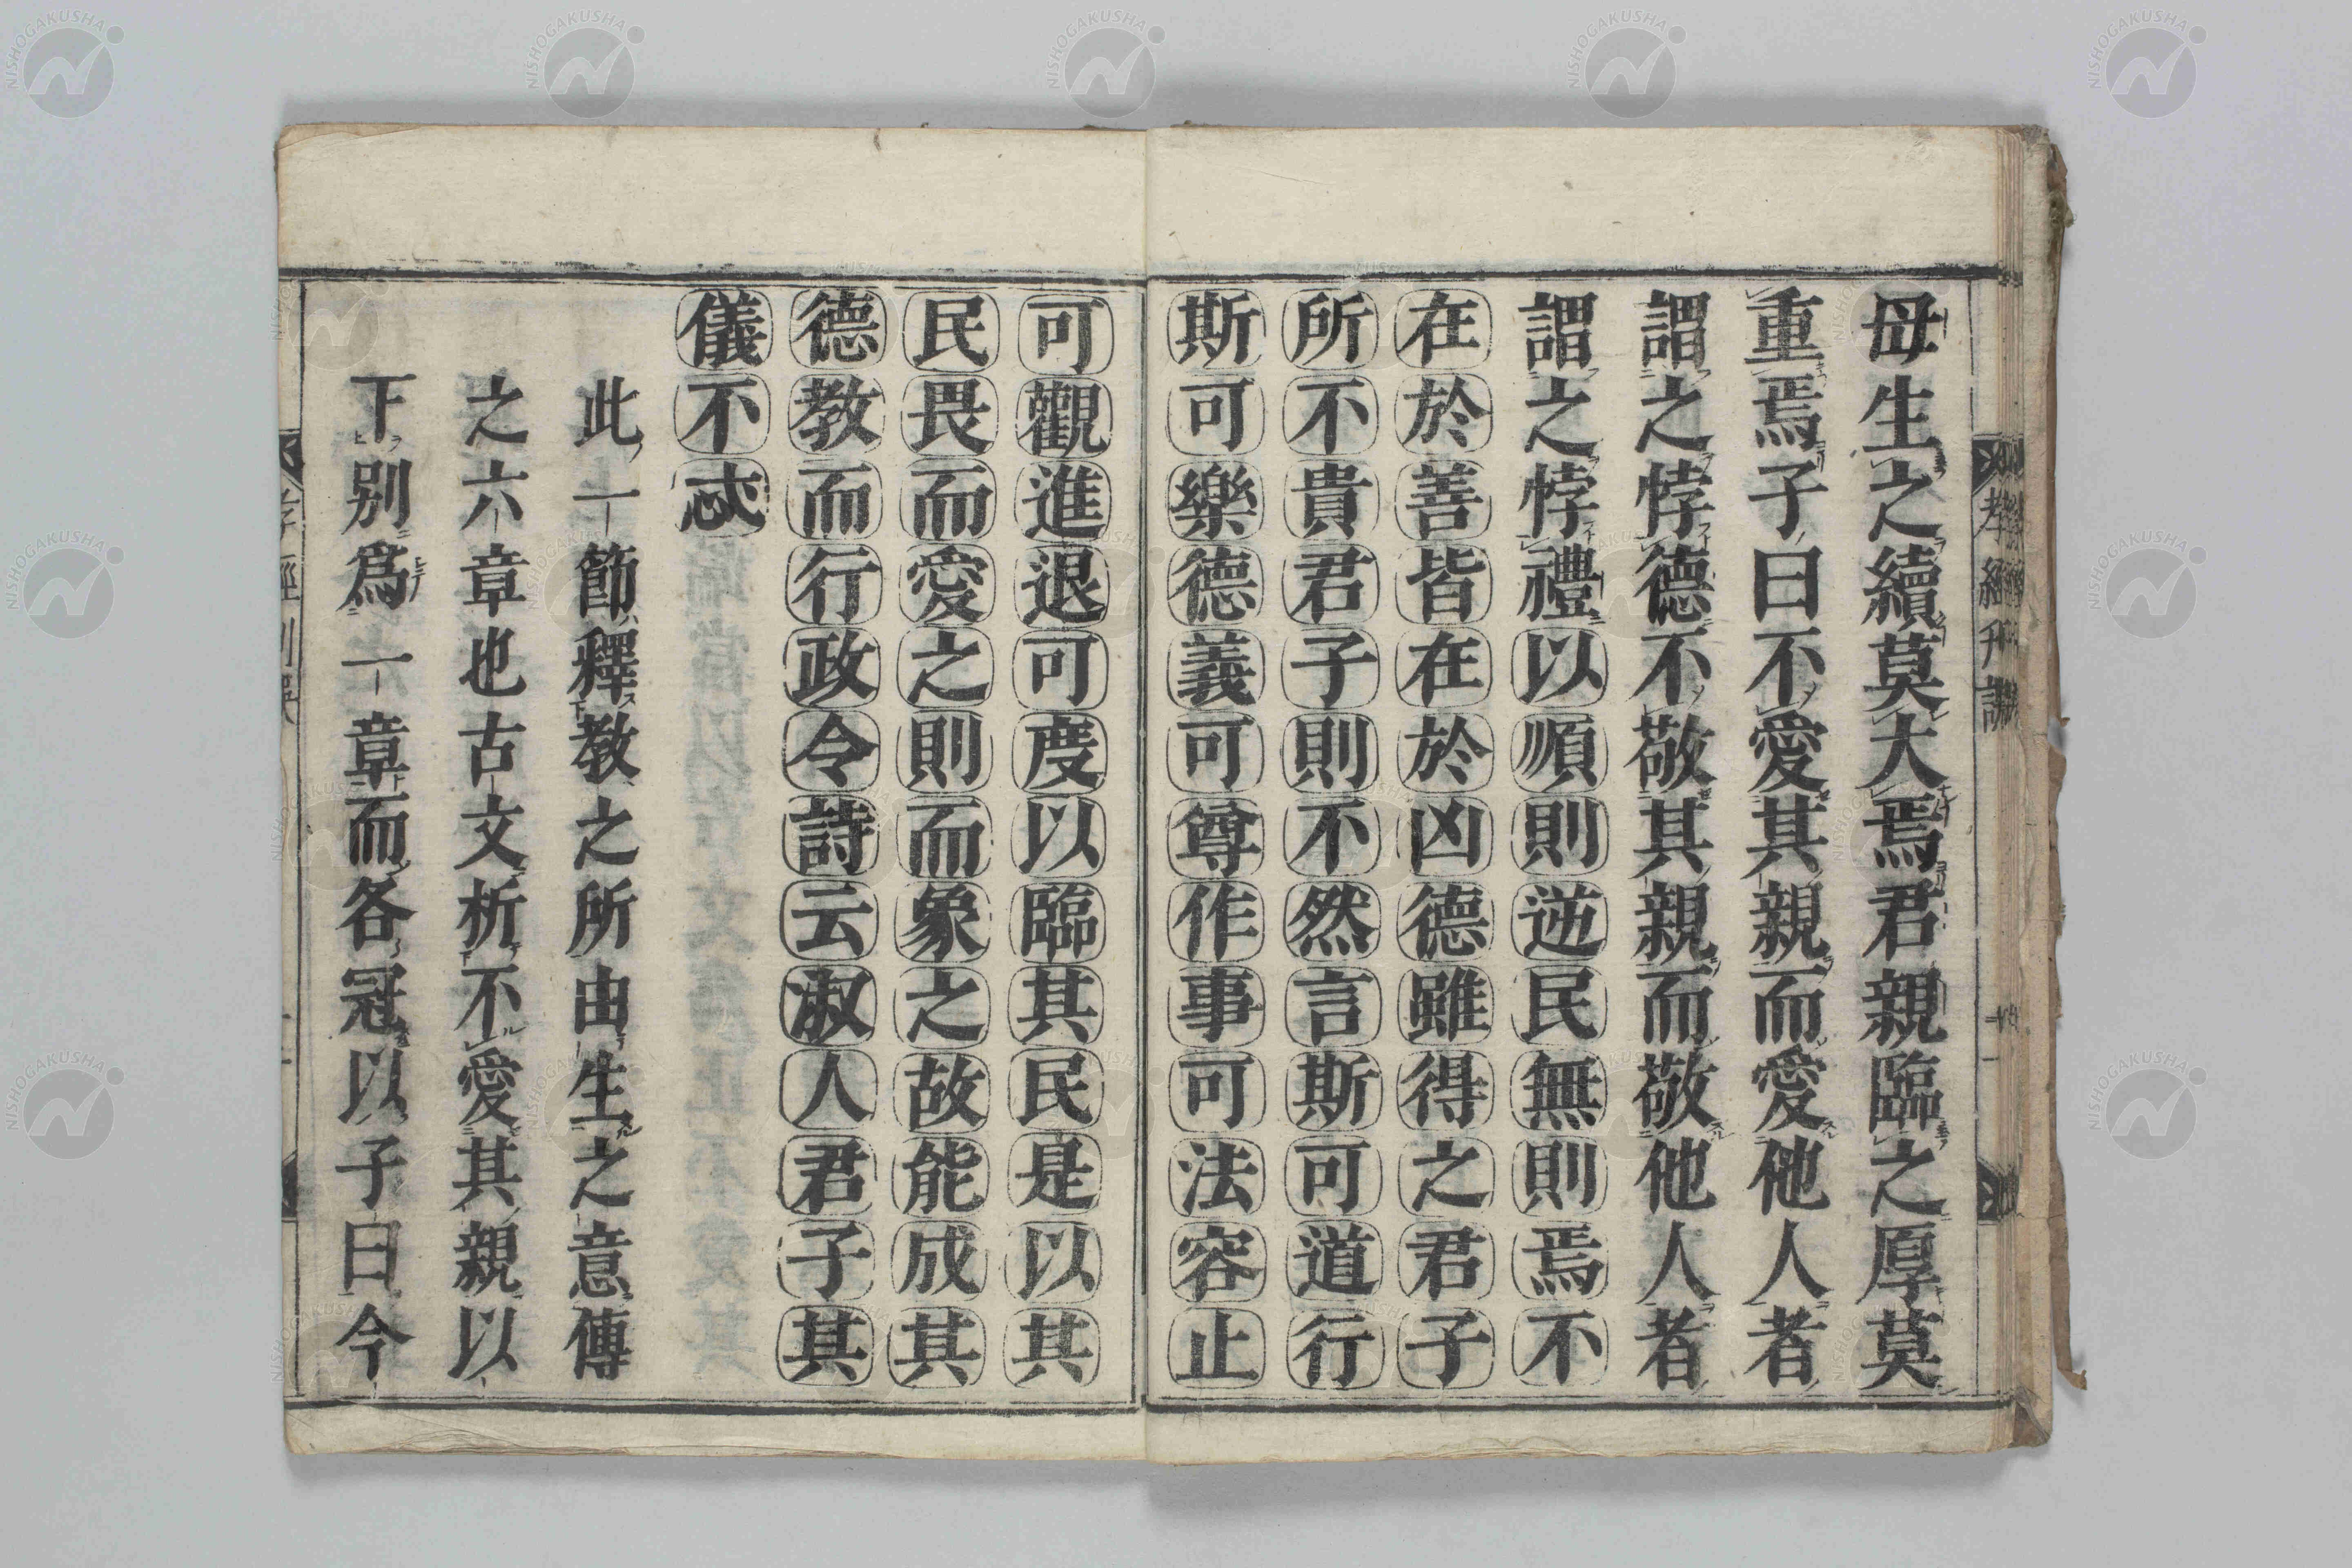 母生之續莫大焉君親臨之厚莫
重焉子曰不愛其親而愛他人者
謂之悖德不敬其親而敬他人者
謂之悖禮以順則逆民無則焉不
在於善皆在於凶德雖得之君子
所不貴君子則不然言斯可道行
斯可樂德義可尊作事可法容止
可觀進退可度以臨其民是以其
民畏而愛之則而象之故能成其
德教而行政令詩云淑人君子其
儀不忒
此一節釋教之所由生之意傳
之六章也古文析不愛其親以
下別爲一章而各冠以子曰今
NISHOGAKUSHA